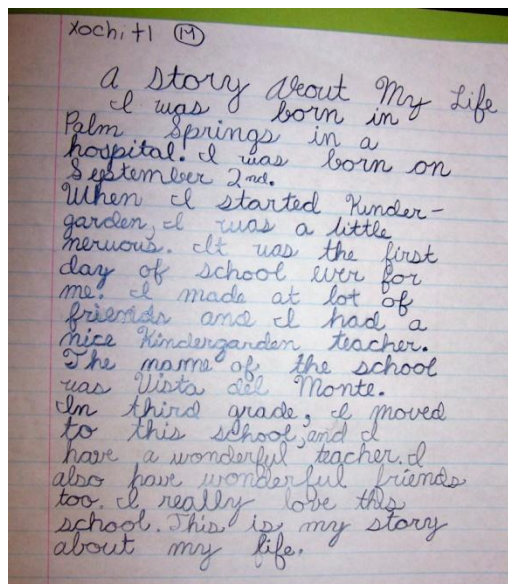 Xochitl 19
A Story About My Life
I was born in
Palm Springs in a
hospital. I was born on
September 2nd.
When I started Kinder-
garden, I was a little
nervous. It was the first
day of school ever for
me. I made at lot of
friends and I had a
nice Kindergarden teacher.
The name of the school
was Vista del Monte.
In third grade, I moved
to this school, and I
have a wonderful teacher. I
also have wonderful friends
too. I really love this
school. This is my story
about my life.